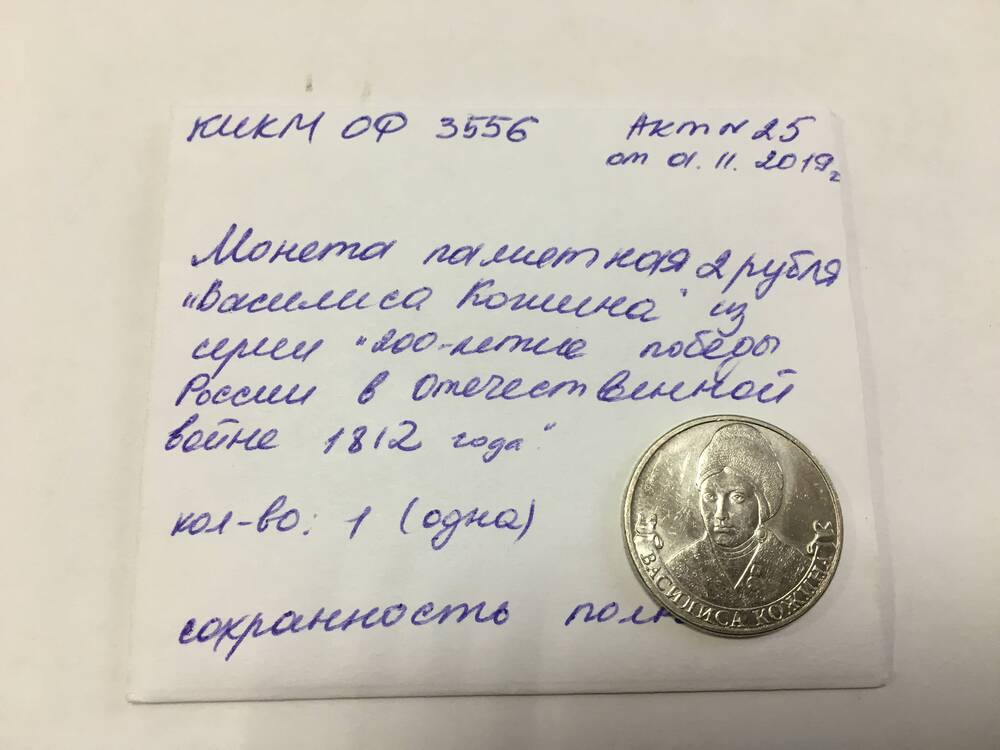 КИКМ ОФ 3556 Акт № 25
от 01.11.2019г
Монета памятная 2 рубля
"Василиса Кожина" из
серии "200-летие победы
России в отечественной
войне 1812 года"
кол-во: 1 (одна)
сохранность полн
ВАСИЛИСА КОЖИНА